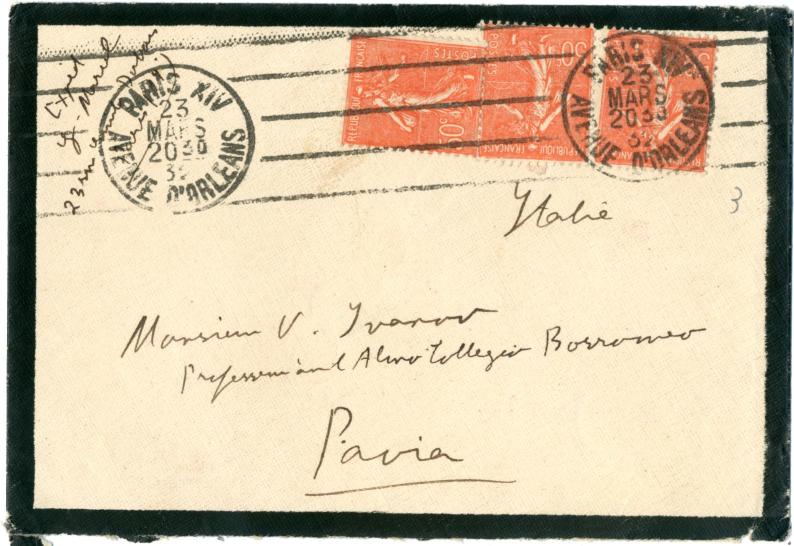 Expéd
G. Marcel
23 rue
PARIS XIV
23
MARS
20 30
32
AVENUE D'ORLEANS
REPUBLIQUE FRANÇAISE
POSTES
50c
REPUBLIQUE FRANÇAISE
POSTES
50c
PARIS XIV
23
MARS
20 30
32
AVENUE D'ORLEANS
Italie
3
Monsieur V. Ivanov
Professeur à l'Almo Collegio Borromeo
Pavia